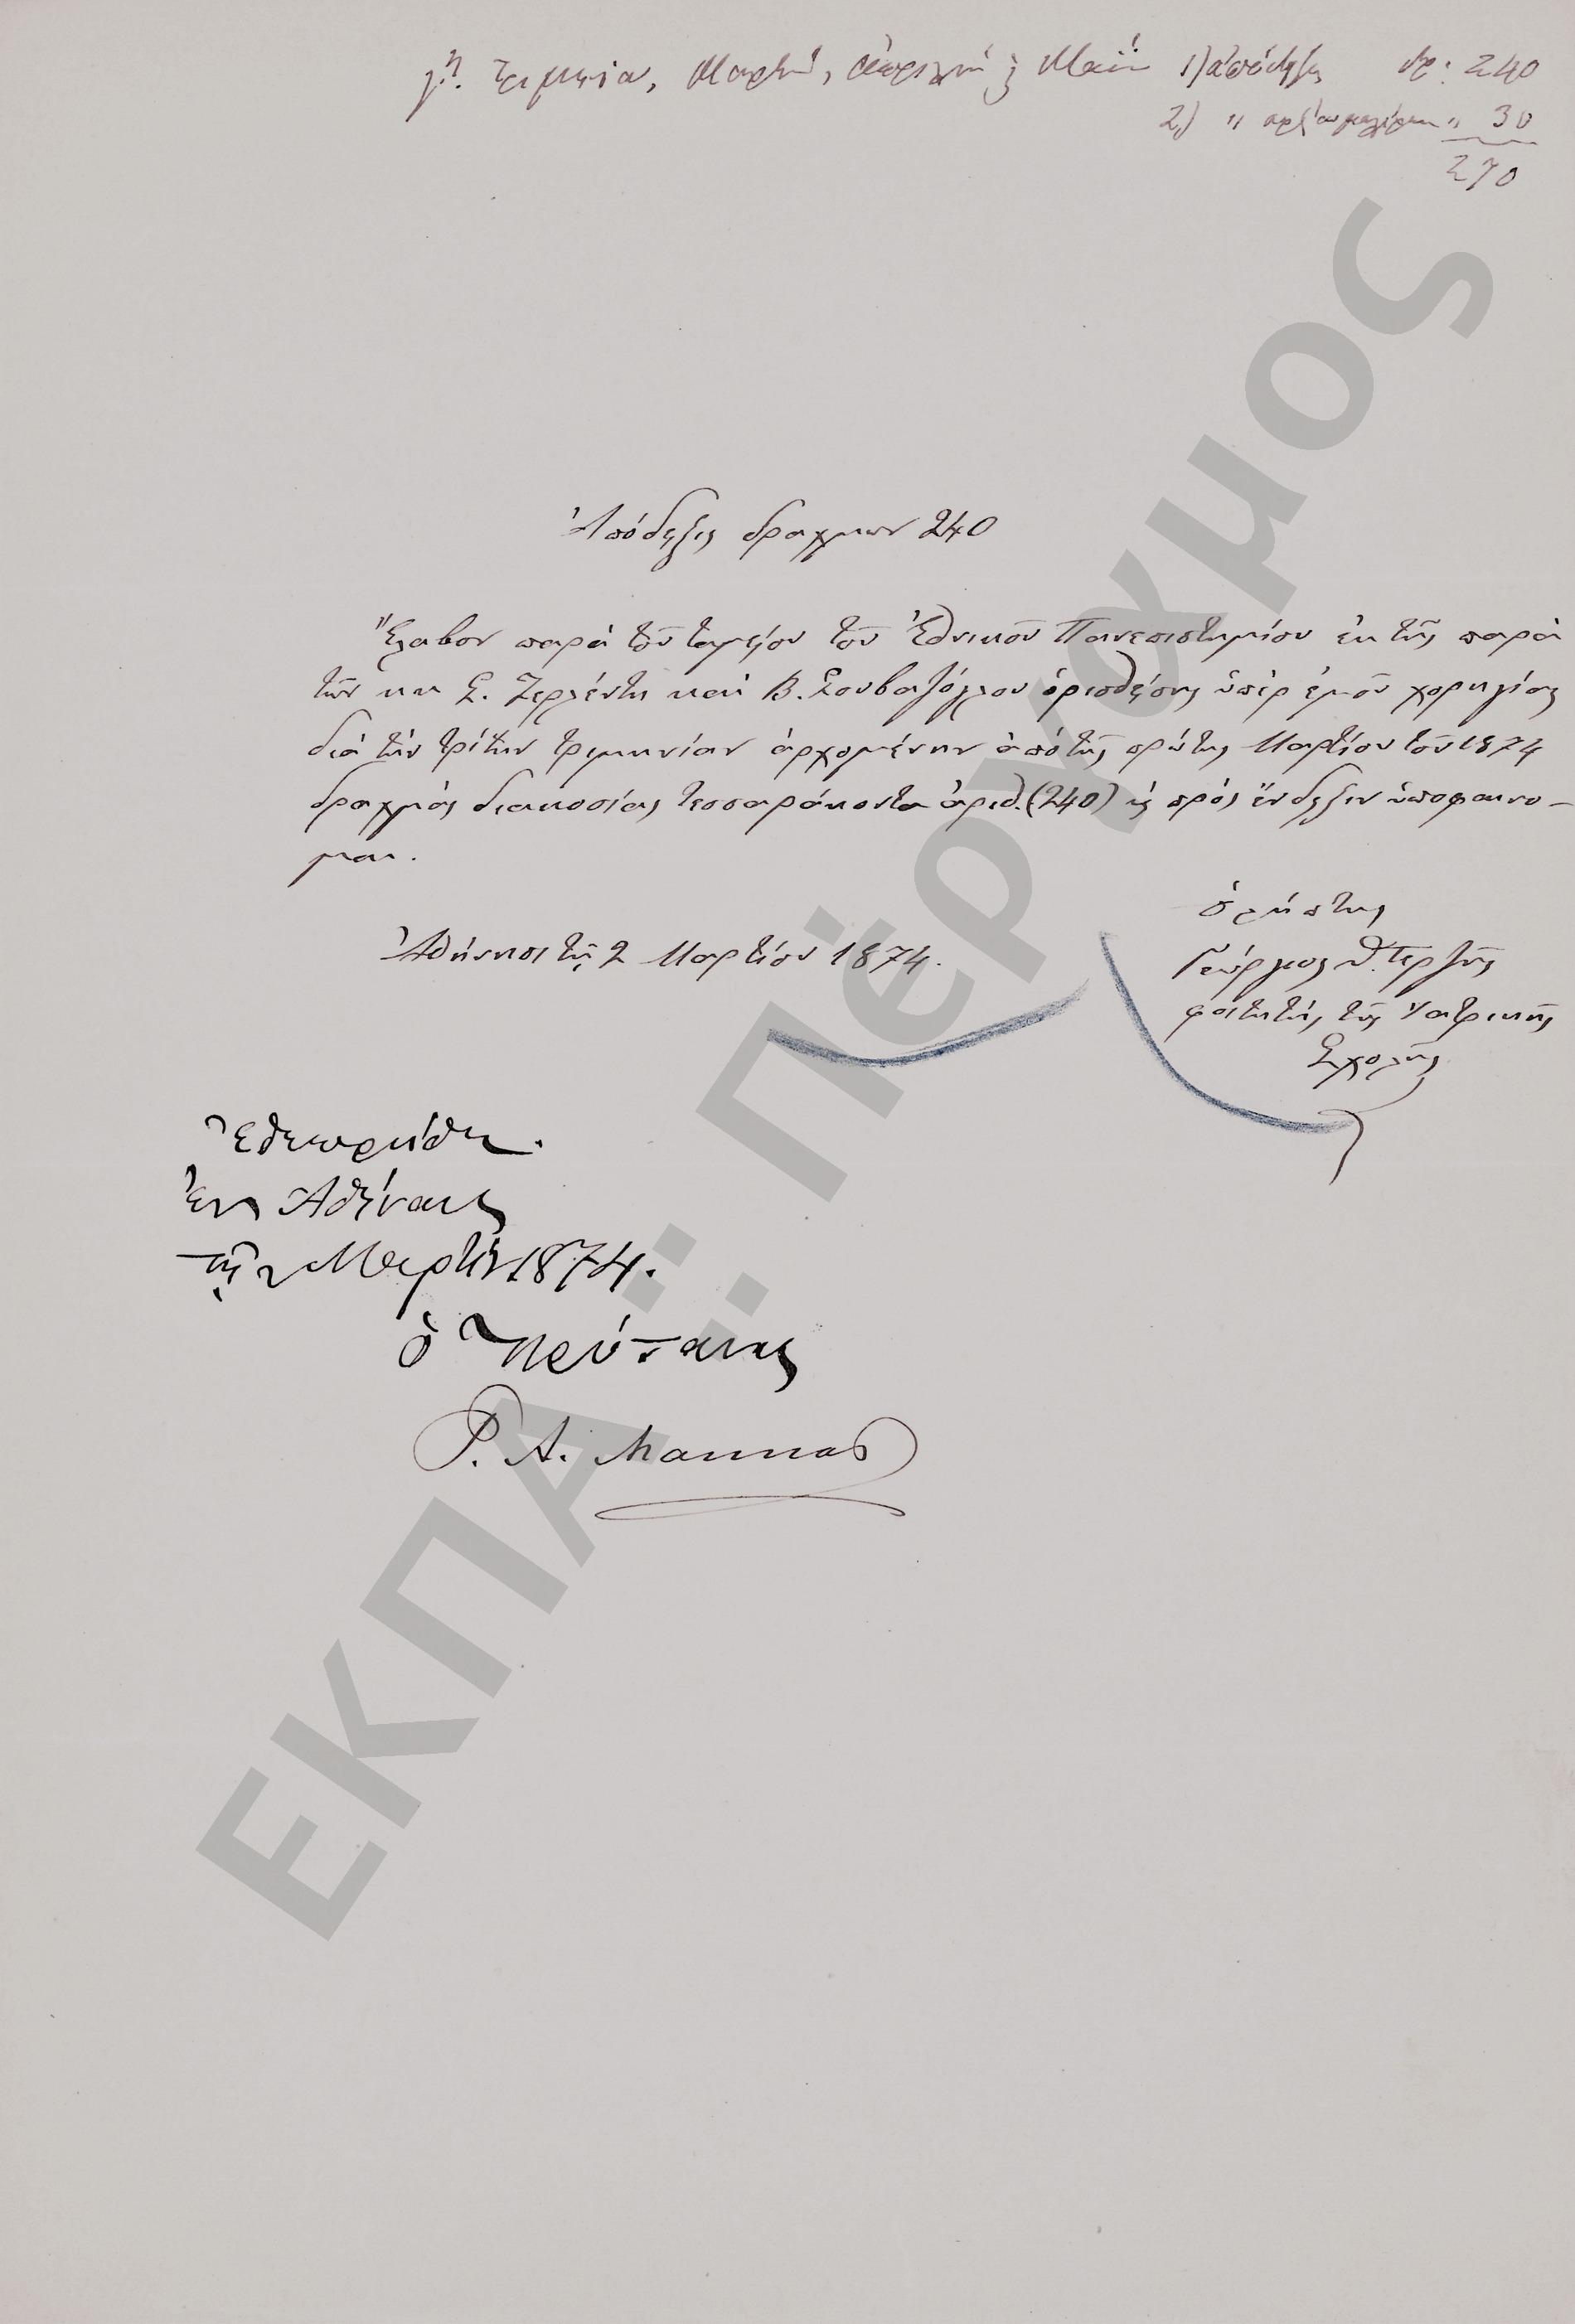 γῃ. τριμηνία, Μαρτίου, Ἀπριλίου ϗ Μαΐου 1) ἀπόδειξις δρ: 240
2) " " 30
270
Ἀπόδειξις δραχμων 240
Ἔλαβον παρὰ τοῦ ταμείου τοῦ Ἐθνικοῦ Πανεπιστημίου ἐκ τῆς παρὰ
τῶν κκ Σ. Ζερλέντη καὶ Β. Σουβατζόγλου ὁρισθείσης ὑπὲρ ἐμοῦ χορηγίας
διὰ τὴν τρίτην τριμηνίαν ἀρχομένην ἀπὸ τῆς πρώτης Μαρτίου τοῦ 1874
δραχμὰς διακοσίας τεσσαράκοντα ἀριθ. (240) εἰς πρὸς ἔνδειξιν ὑποφαινο-
μαι.
Ἀθήνησι τῇ 2 Μαρτίου 1874.
ὁ λήπτης
Γεώργιος Θ. Τερζῆς
φοιτητὴς τῆς Ἰατρικῆς
Σχολῆς
Ἐθεωρήθη.
Ἐν Ἀθήναις
τῇ 2 Μαρτίου 1874.
ὁ Πρύτανις
Ρ. Α. Μαυριάς
ΕΚΠΑ :: Πέργαμος